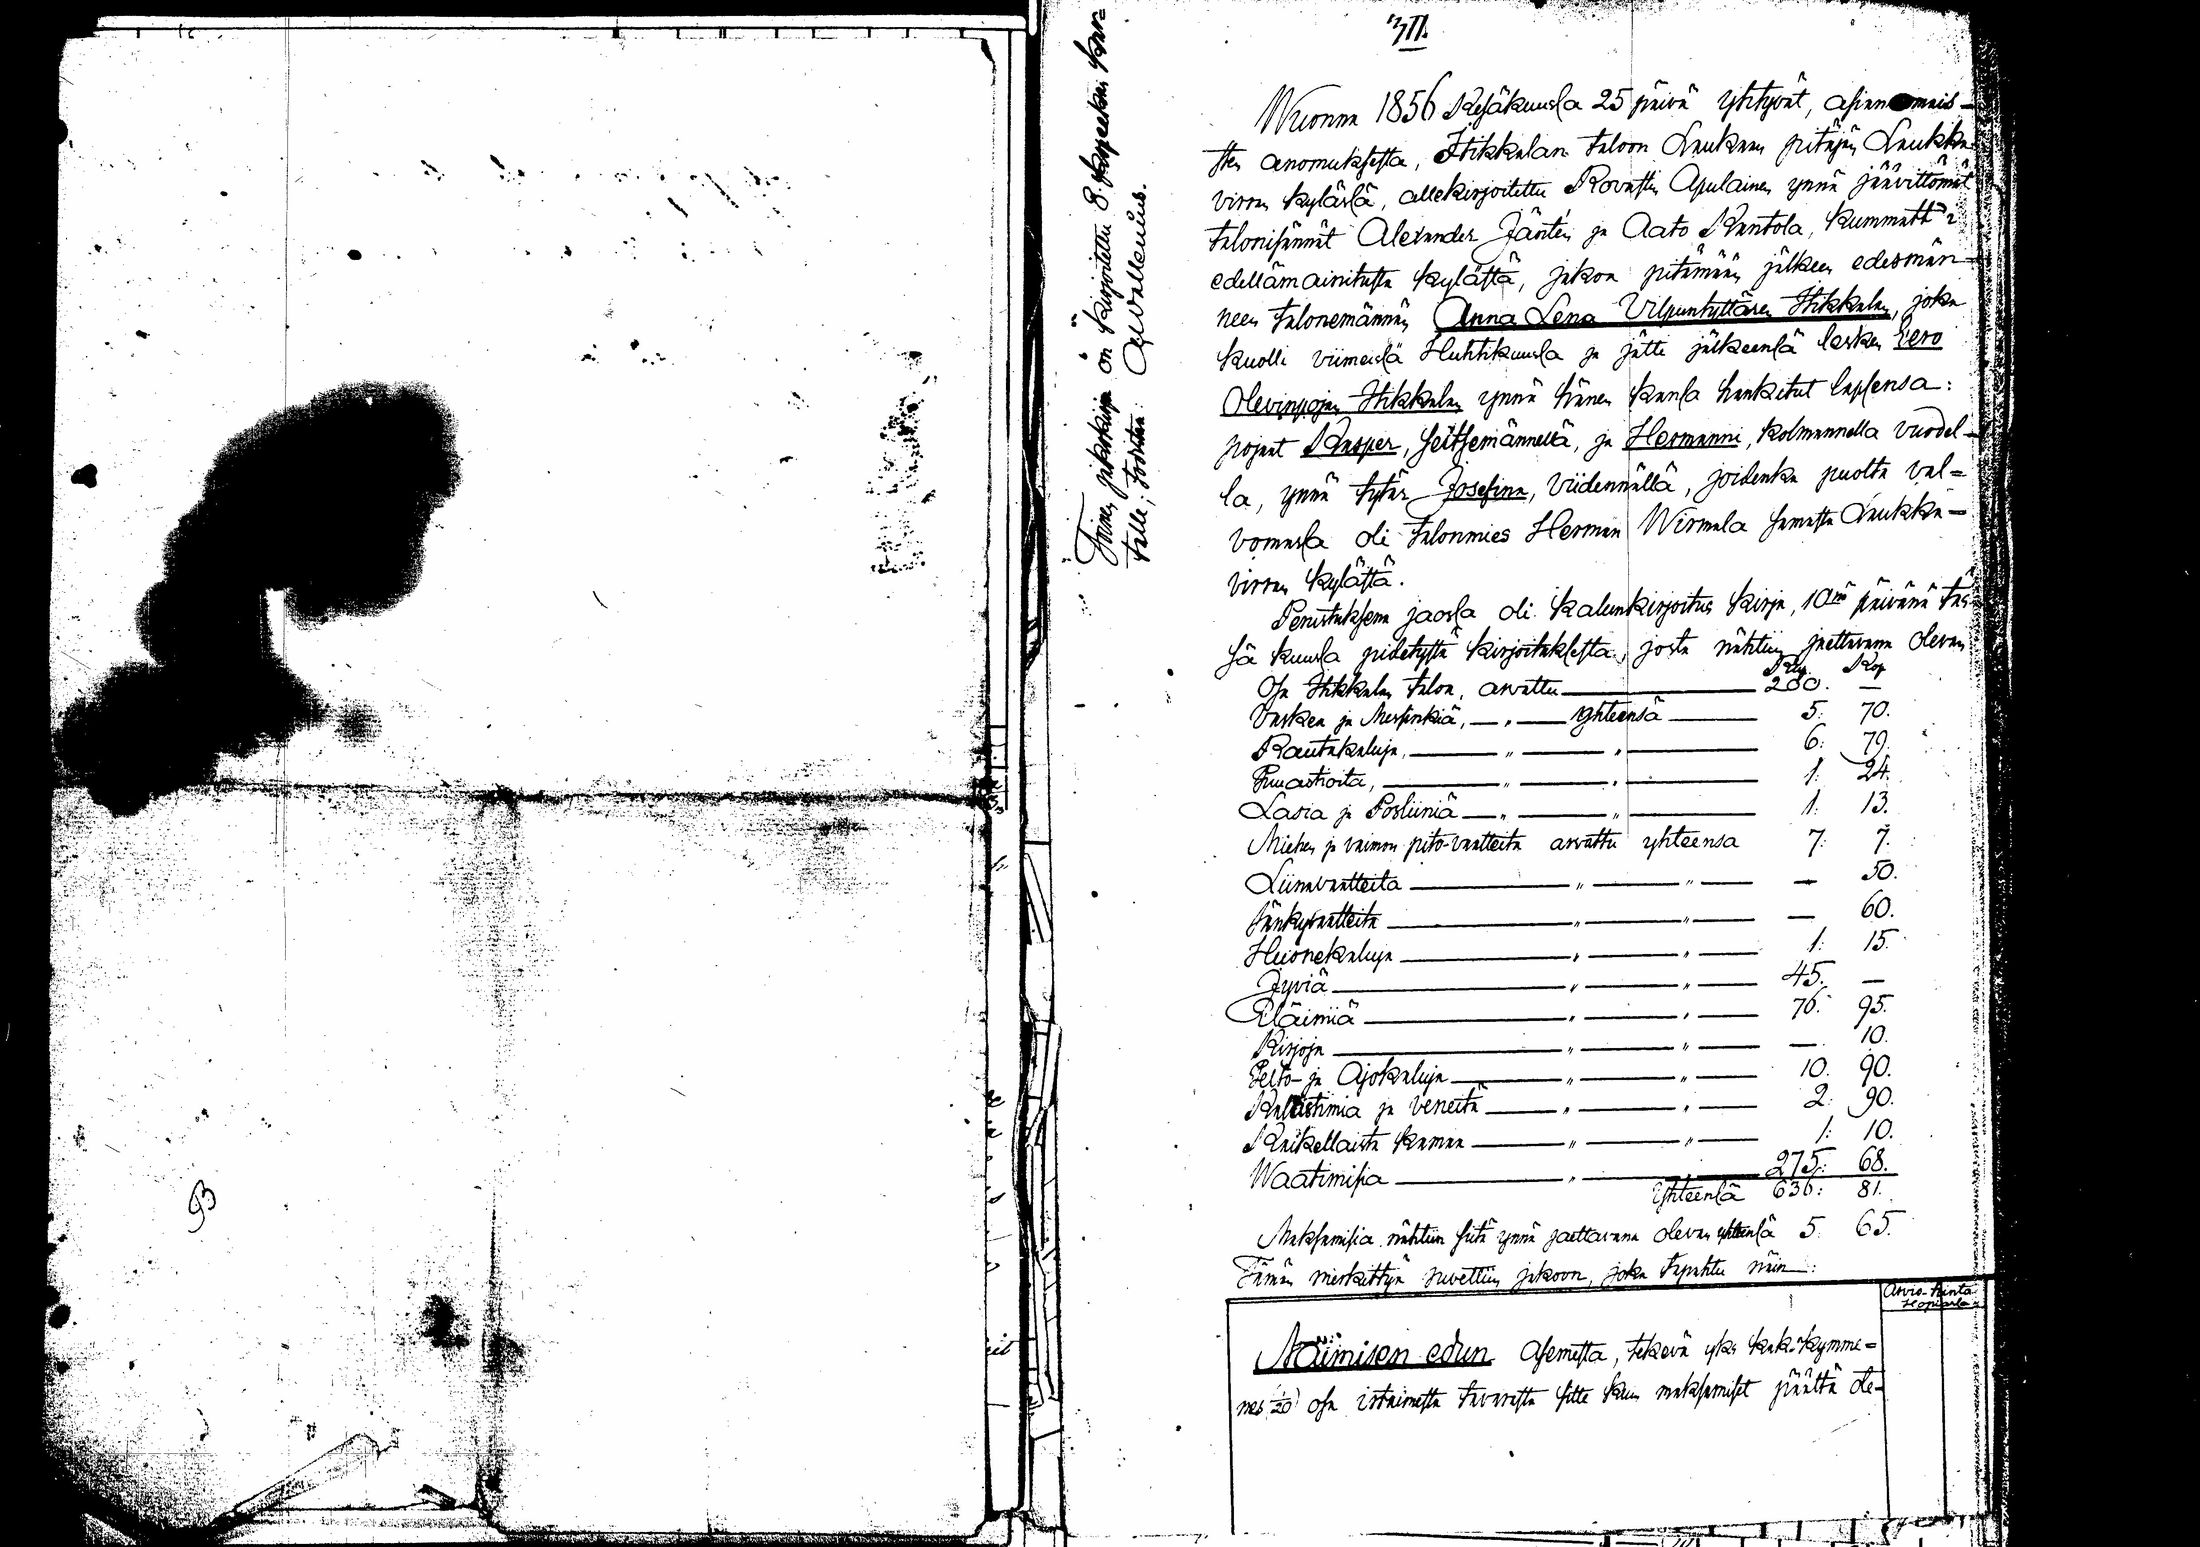 93
Tämä jakokirja on kirjoitettu 8. kopeekan kar=
talle; todistaa: Awallenius.
3/II.
Wuonna 1856 Kesäkuusla 25 päivä yhtyvät, asian omais-
ten anomuksesta, Itikkalan taloon Laukaan pitäjän Laukka-
virran kyläslä, allekirjoitettu Rovastin Apulainen ynnä jäävittömät
talonisännät Alexander Jäntén ja Aato Kantola, kummatki
edellämainitusta kylästä, jakoa pitämään jälkeen edesmän-
neen talonemännän Anna Lena Vilpuntyttären Itikkalan, joka
kuolli viimeislä Huhtikuusla ja jätti jälkeenlä lesken Eero
Olevinpojan Itikkalan ynnä hänen kansla hankitut lapsensa:
pojaat Kasper, seitsemännellä, ja Hermanni, kolmannella vuodel-
la, ynnä tytär Josefina, viidennällä, joidenka puolta val=
vomasla oli talonmies Herman Wirmala samasta Laukka-
virran kylästä.
Perustuksena jaosla oli kalunkirjoitus kirja, 10nä päivänä täs-
sä kuusla pidetystä kirjoituksesta, josta nähtiin jaettavana olevan
Rup. Kop
Osa Itikkalan taloa, arvattu 200. —
Vaskea ja Messinkiä, — " — yhteensä 5: 70.
Rautakaluja, — " — " — 6: 79.
Puuastioita, — " — " — 1: 24.
Lasia ja Posliiniä — " — " — 1: 13.
Miehen ja vaimon pito-vaatteita arvattu yhteensa 7: 7.
Liinavaatteita — " — " — — 50.
Sänkyvaatteita — " — " — — 60.
Huonekaluja — " — " — 1: 15.
Jyviä — " — " — 45. —
Eläimiä — " — " — 76: 95.
Kirjoja — " — " — —. 10.
Pelto- ja Ajokaluja — " — " — 10. 90.
Kalastimia ja veneitä — " — " — 2: 90.
Kaikellaista kamaa — " — " — 1: 10.
Waatimisia — " — 275: 68.
yhteenlä 636: 81.
Maksamisia nähtiin siitä ynnä jaettavana olevan yhteenlä 5 65.
Tämän merkittyä ruvettiin jakoon, joka tapahtu näin:
Arvio-hinta
Hopiasla
Näimisen edun Asemesta, tekevä yks kaks-kymme=
nes (1/20) osa irtaimesta tavarasta sitte kun maksamiset päältä ole-